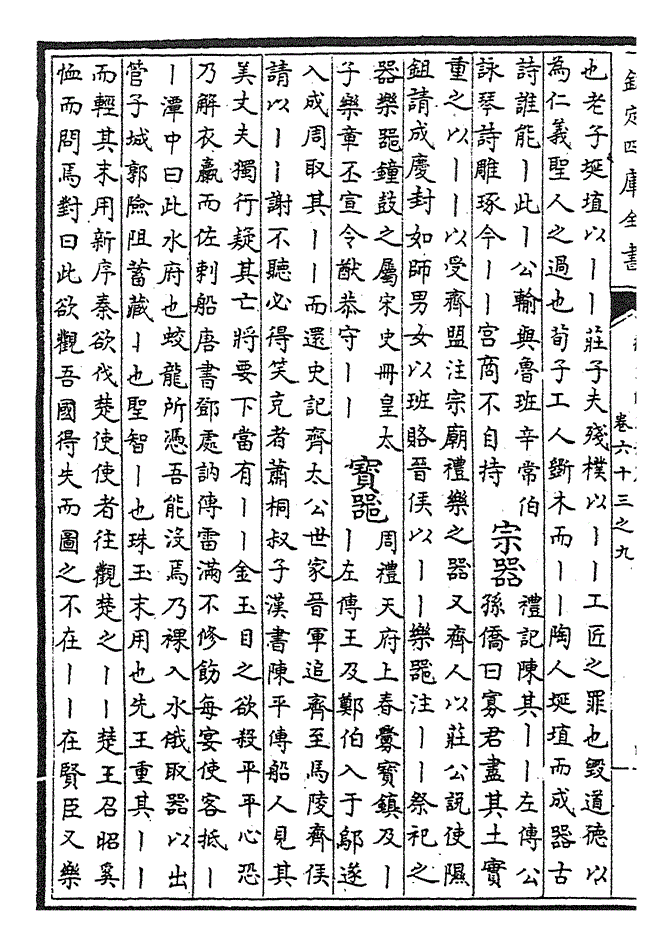 欽定四庫全書
卷六十三之九
也老子埏埴以丨丨莊子夫殘樸以丨丨工匠之罪也毀道德以
為仁義聖人之過也荀子工人斲木而丨丨陶人埏埴而成器古
詩誰能丨此丨公輸與魯班辛常伯
詠琴詩雕琢今丨丨宮商不自持
宗器
禮記陳其丨丨左傳公
孫僑曰寡君盡其土實
重之以丨丨以受齊盟注宗廟禮樂之器又齊人以莊公說使隰
鉏請成慶封如師男女以班賂晉侯以丨丨樂器注丨丨祭祀之
器樂器鐘鼓之屬宋史冊皇太
子樂章丕宣令猷恭守丨丨
寶器
周禮天府上春釁寶鎮及丨
丨左傳王及鄭伯入于鄔遂
入成周取其丨丨而還史記齊太公世家晉軍追齊至馬陵齊侯
請以丨丨謝不聽必得笑克者蕭桐叔子漢書陳平傳船人見其
美丈夫獨行疑其亡將要下當有丨丨金玉目之欲殺平平心恐
乃解衣羸而佐刺船唐書鄧處訥傳雷滿不修飭每宴使客抵丨
丨潭中曰此水府也蛟龍所憑吾能沒焉乃裸入水俄取器以出
管子城郭險阻蓄藏丨也聖智丨也珠玉末用也先王重其丨丨
而輕其末用新序秦欲伐楚使使者往觀楚之丨丨楚王召昭奚
恤而問焉對曰此欲觀吾國得失而圖之不在丨丨在賢臣又樂